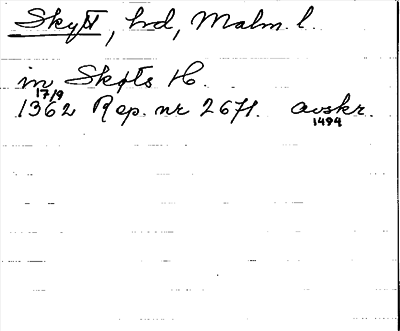 Skytt, hd, Malm. l.
in Skytts H.
17/9
1362 Rep. nr 2671. avskr.
1494